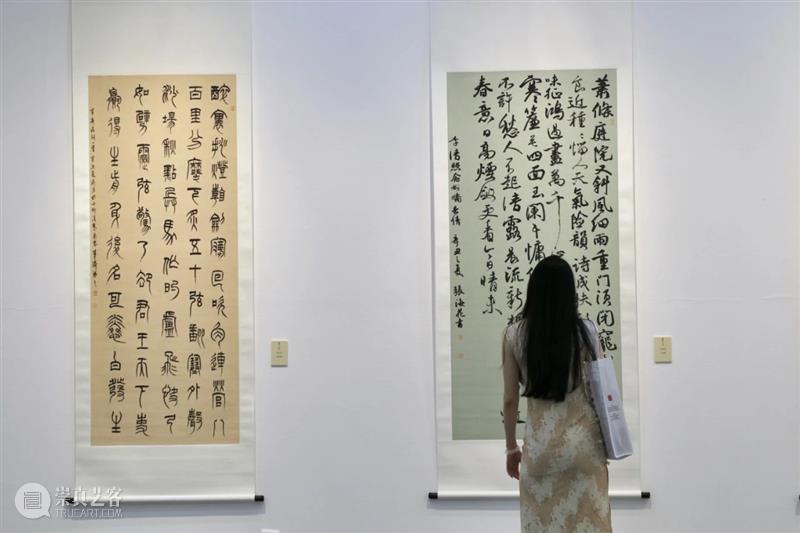 醉裏挑燈看劍夢回吹角連營八
百里分麾下炙五十弦翻塞外聲
沙場秋點兵馬作的盧飛快弓
如霹靂弦驚了卻君王天下事
贏得生前身後名可憐白發生
蕭條庭院又斜風細雨重門須閉寵
食近種種惱人天氣險韻詩成扶
味征鴻過盡萬千
寒簾垂四面玉闌干慵
不許愁人不起清露晨流新桐
春意日高煙斂更看今日晴未
李清照念奴嬌春情 辛丑之夏 張海花書
崇真艺客
WWW.TRUEART.COM